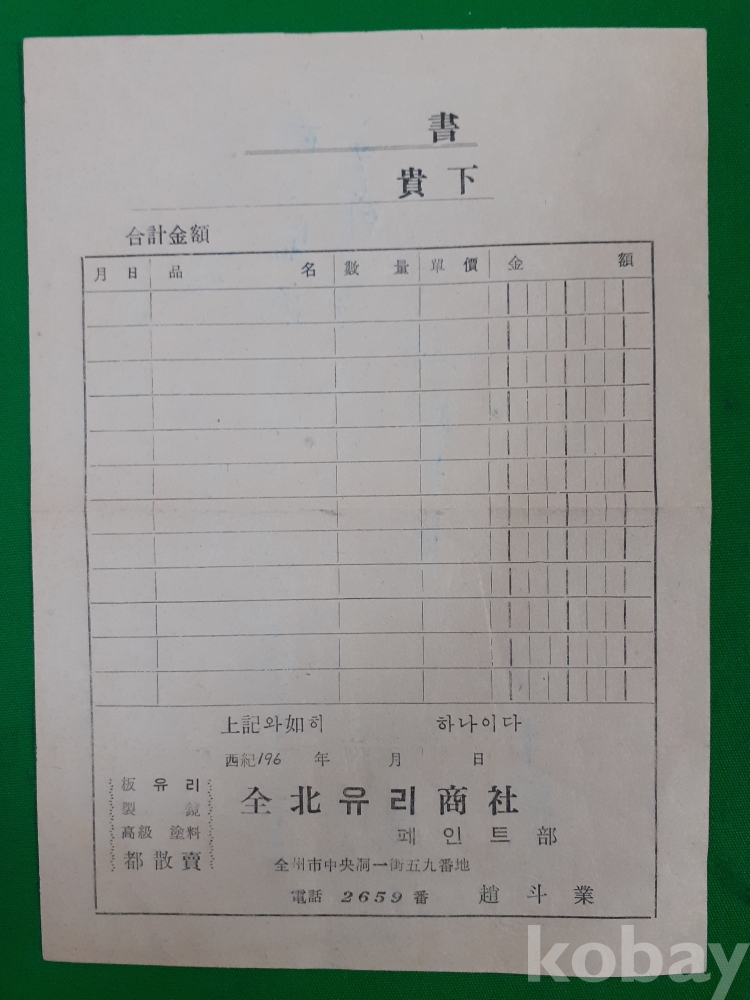 書
貴下
合計金額
月 日 品 名 數 量 單 價 金 額
上記와如히 하나이다
西紀196 年 月 日
板 유 리
製 鏡
高級 塗料
都散賣
全北유리商社
페인트部
全州市中央洞一街五九番地
電話 2659 番 趙斗業
kobay